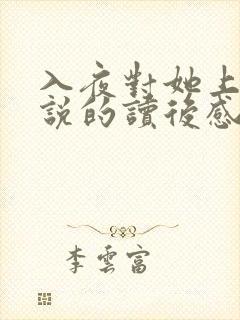 入夜對她上
說的讀後感
李雲富